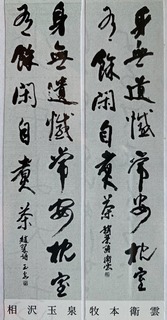 身無遺憾常安枕室
有餘閑自煮茶
牧本衛雲
身無遺憾常安枕室
有餘閑自煮茶
相沢玉泉